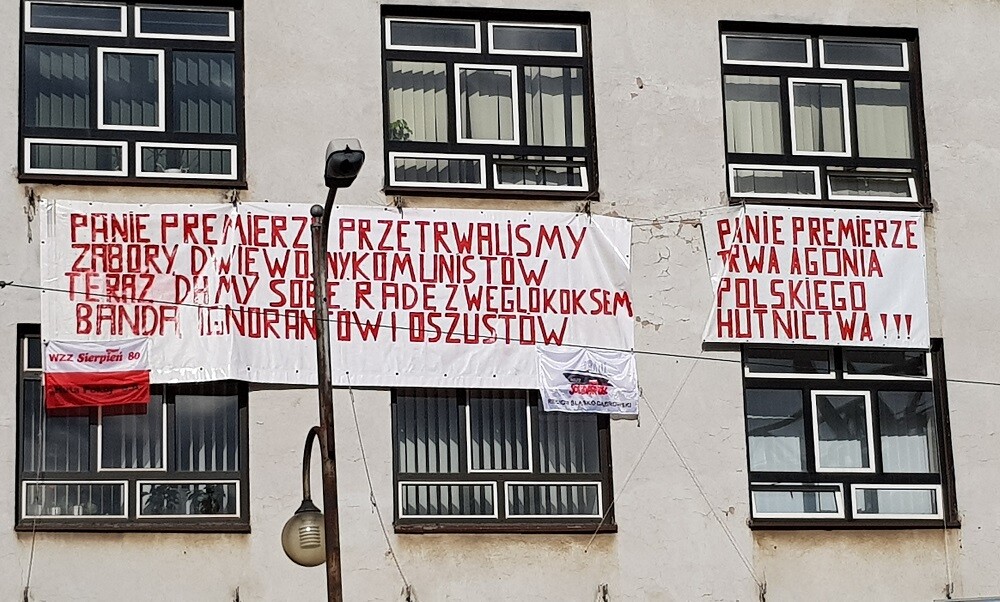 PANIE PREMIERZE PRZETRWALISMY
ZABORY DWIE WOJNY KOMUNISTÓW
TERAZ DAMY SOBIE RADE Z WEGLOKOKSEM
BANDA IGNORANTÓW I OSZUSTÓW
PANIE PREMIERZE
TRWA AGONIA
POLSKIEGO
HUTNICTWA !!!
WZZ Sierpień 80